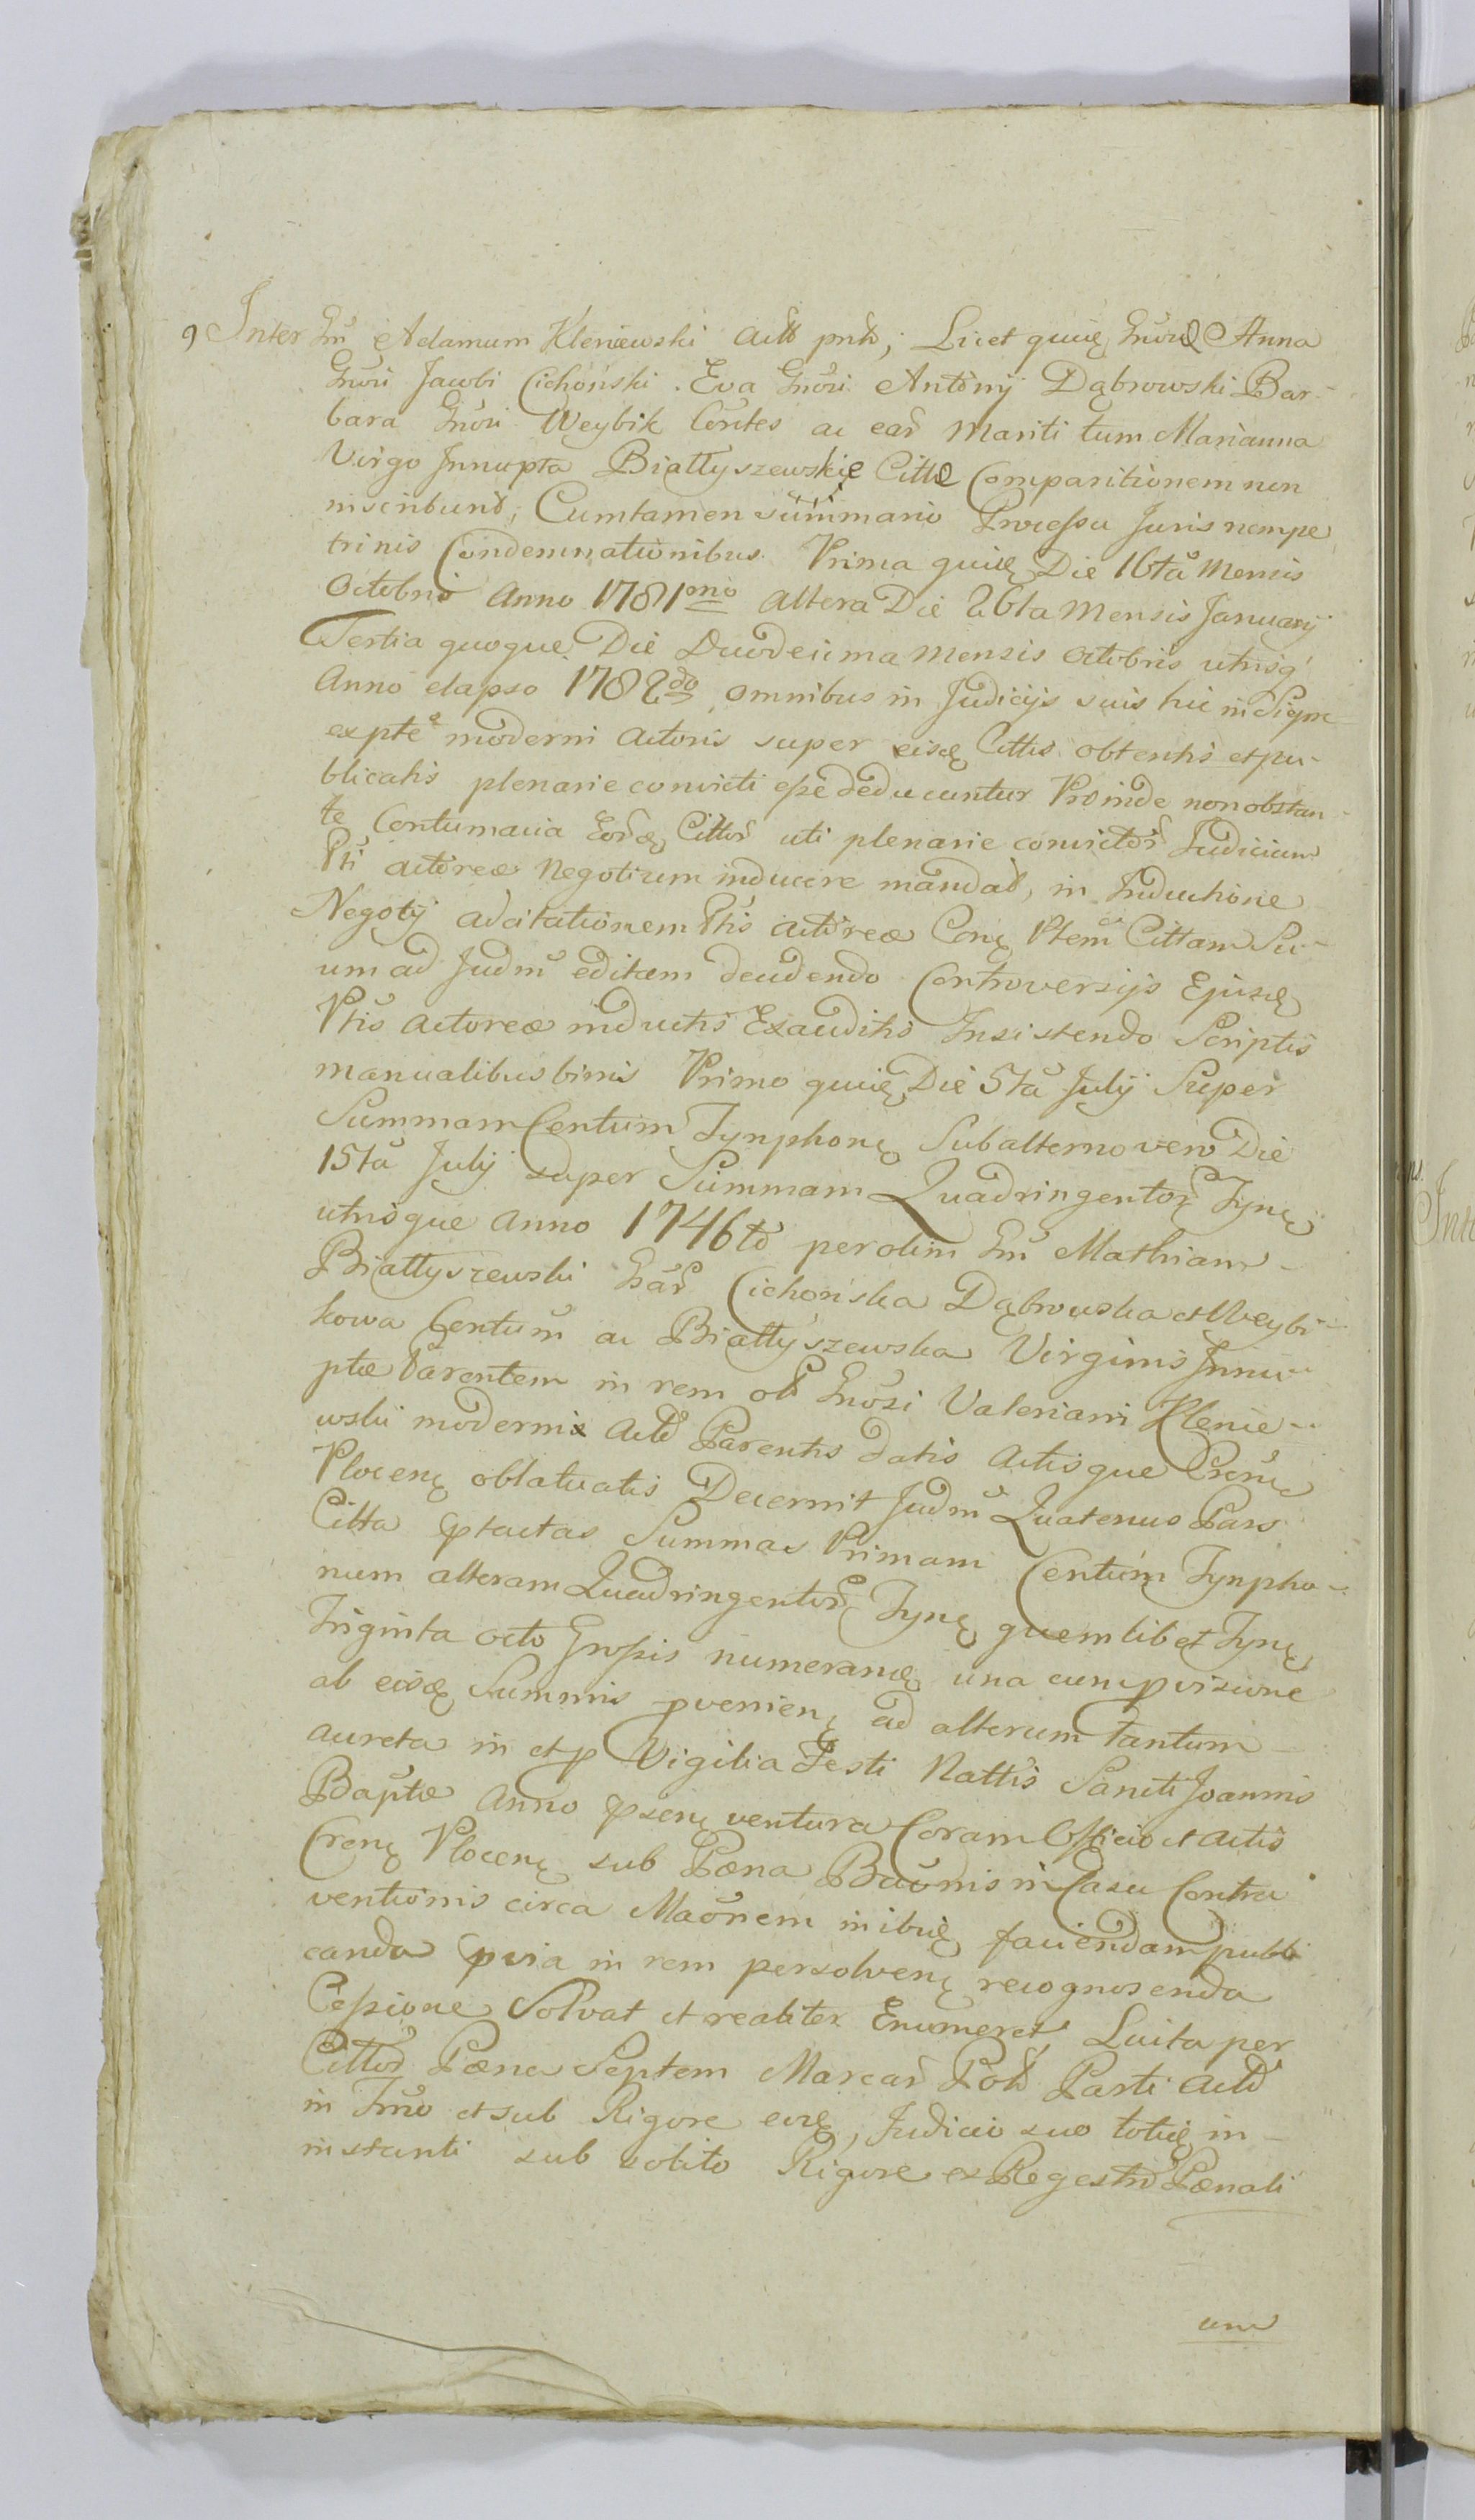 9 Inter Gm Adamum Kleniewski Actt pntt, Licet quię Gnorę Anna
Gnōri Jacobi Cichoński. Eva Gnōri Antōnij Dąbrowski Bar-
bara Gnōri Weybik Cōrtes ac ear Mariti tum Marianna
Virgo Innupta Białłyszewskie Cittę Comparitionem non
inscribunt, Cumtamen summario Processu Juris nempe
trinis Condemnationibus Prima quię Die 16ta Mensis
Octobris Anno 1781mo altera Die 26ta Mensis Januarij
Tertia quoque Die Duodecima Mensis Octobris utrisq
Anno elapso 1782do omnibus in Judicijs suis hic in Sierpc
expte moderni Actoris super eisę Cittis obtentis et pu-
blicatis plenarie convicti eße deducuntur Proinde non obstan-
te Contumacia Eorę Cittor uti plenarie convictor Judicium
Pti actoreæ Negotium inducere mandat, in Inductione
Negotij adcitationem Ptis Actoreæ Conę Ptem Cittam Su-
um ad Judm editam decudendo Controversijs Ejusę
Ptis Actoreæ inductis Exauditis Insistendo Scriptis
manualibus binis Primo quię Die 5ta Julij Super
Summam Centum Tynphonę Subalterno vero Die
15ta Julij super Summam Quadringentor Tynę
utrisque Anno 1746to per olim Gm Mathiam
Białłyszewski Gnar Cichońska Dąbrowska et Weybi-
kowa Centum ac Białłyszewska Virginis Innu-
ptæ Parentem in rem olt Gnosi Valeriani Klenie-
wski moderni Actt Parentis datis Actisque Crenę
Plocenę oblatuatis Decernit Judm Quatenus Pars
Citta ptactas Summas Primam Centum Tynpho-
num alteram Quadringentor Tynę quemlibet Tynę
Triginta octo Großis numeranę una cum pvisione
ab eisę Summis pvenienę ad alterum tantum
aureta in et p Vigilia Festi Nattis Sancti Joannis
Baptæ Anno psenę ventura Coram Officio et Actis
Crenę Plocenę sub Pæna Bañōnis in Casu Contra
ventionis circa Maōnem inibię faciendam publi
canda pvia in rem persolvenę recognoscenda
Ceßione Solvat et realiter Enumeret Luita per
Cittor Pæna Septem Marcar Polt Parti Actt
in Fmo et sub Rigore eoę, Judicio suo totię in-
instanti sub solito Rigore ex Regestro Pænali
um